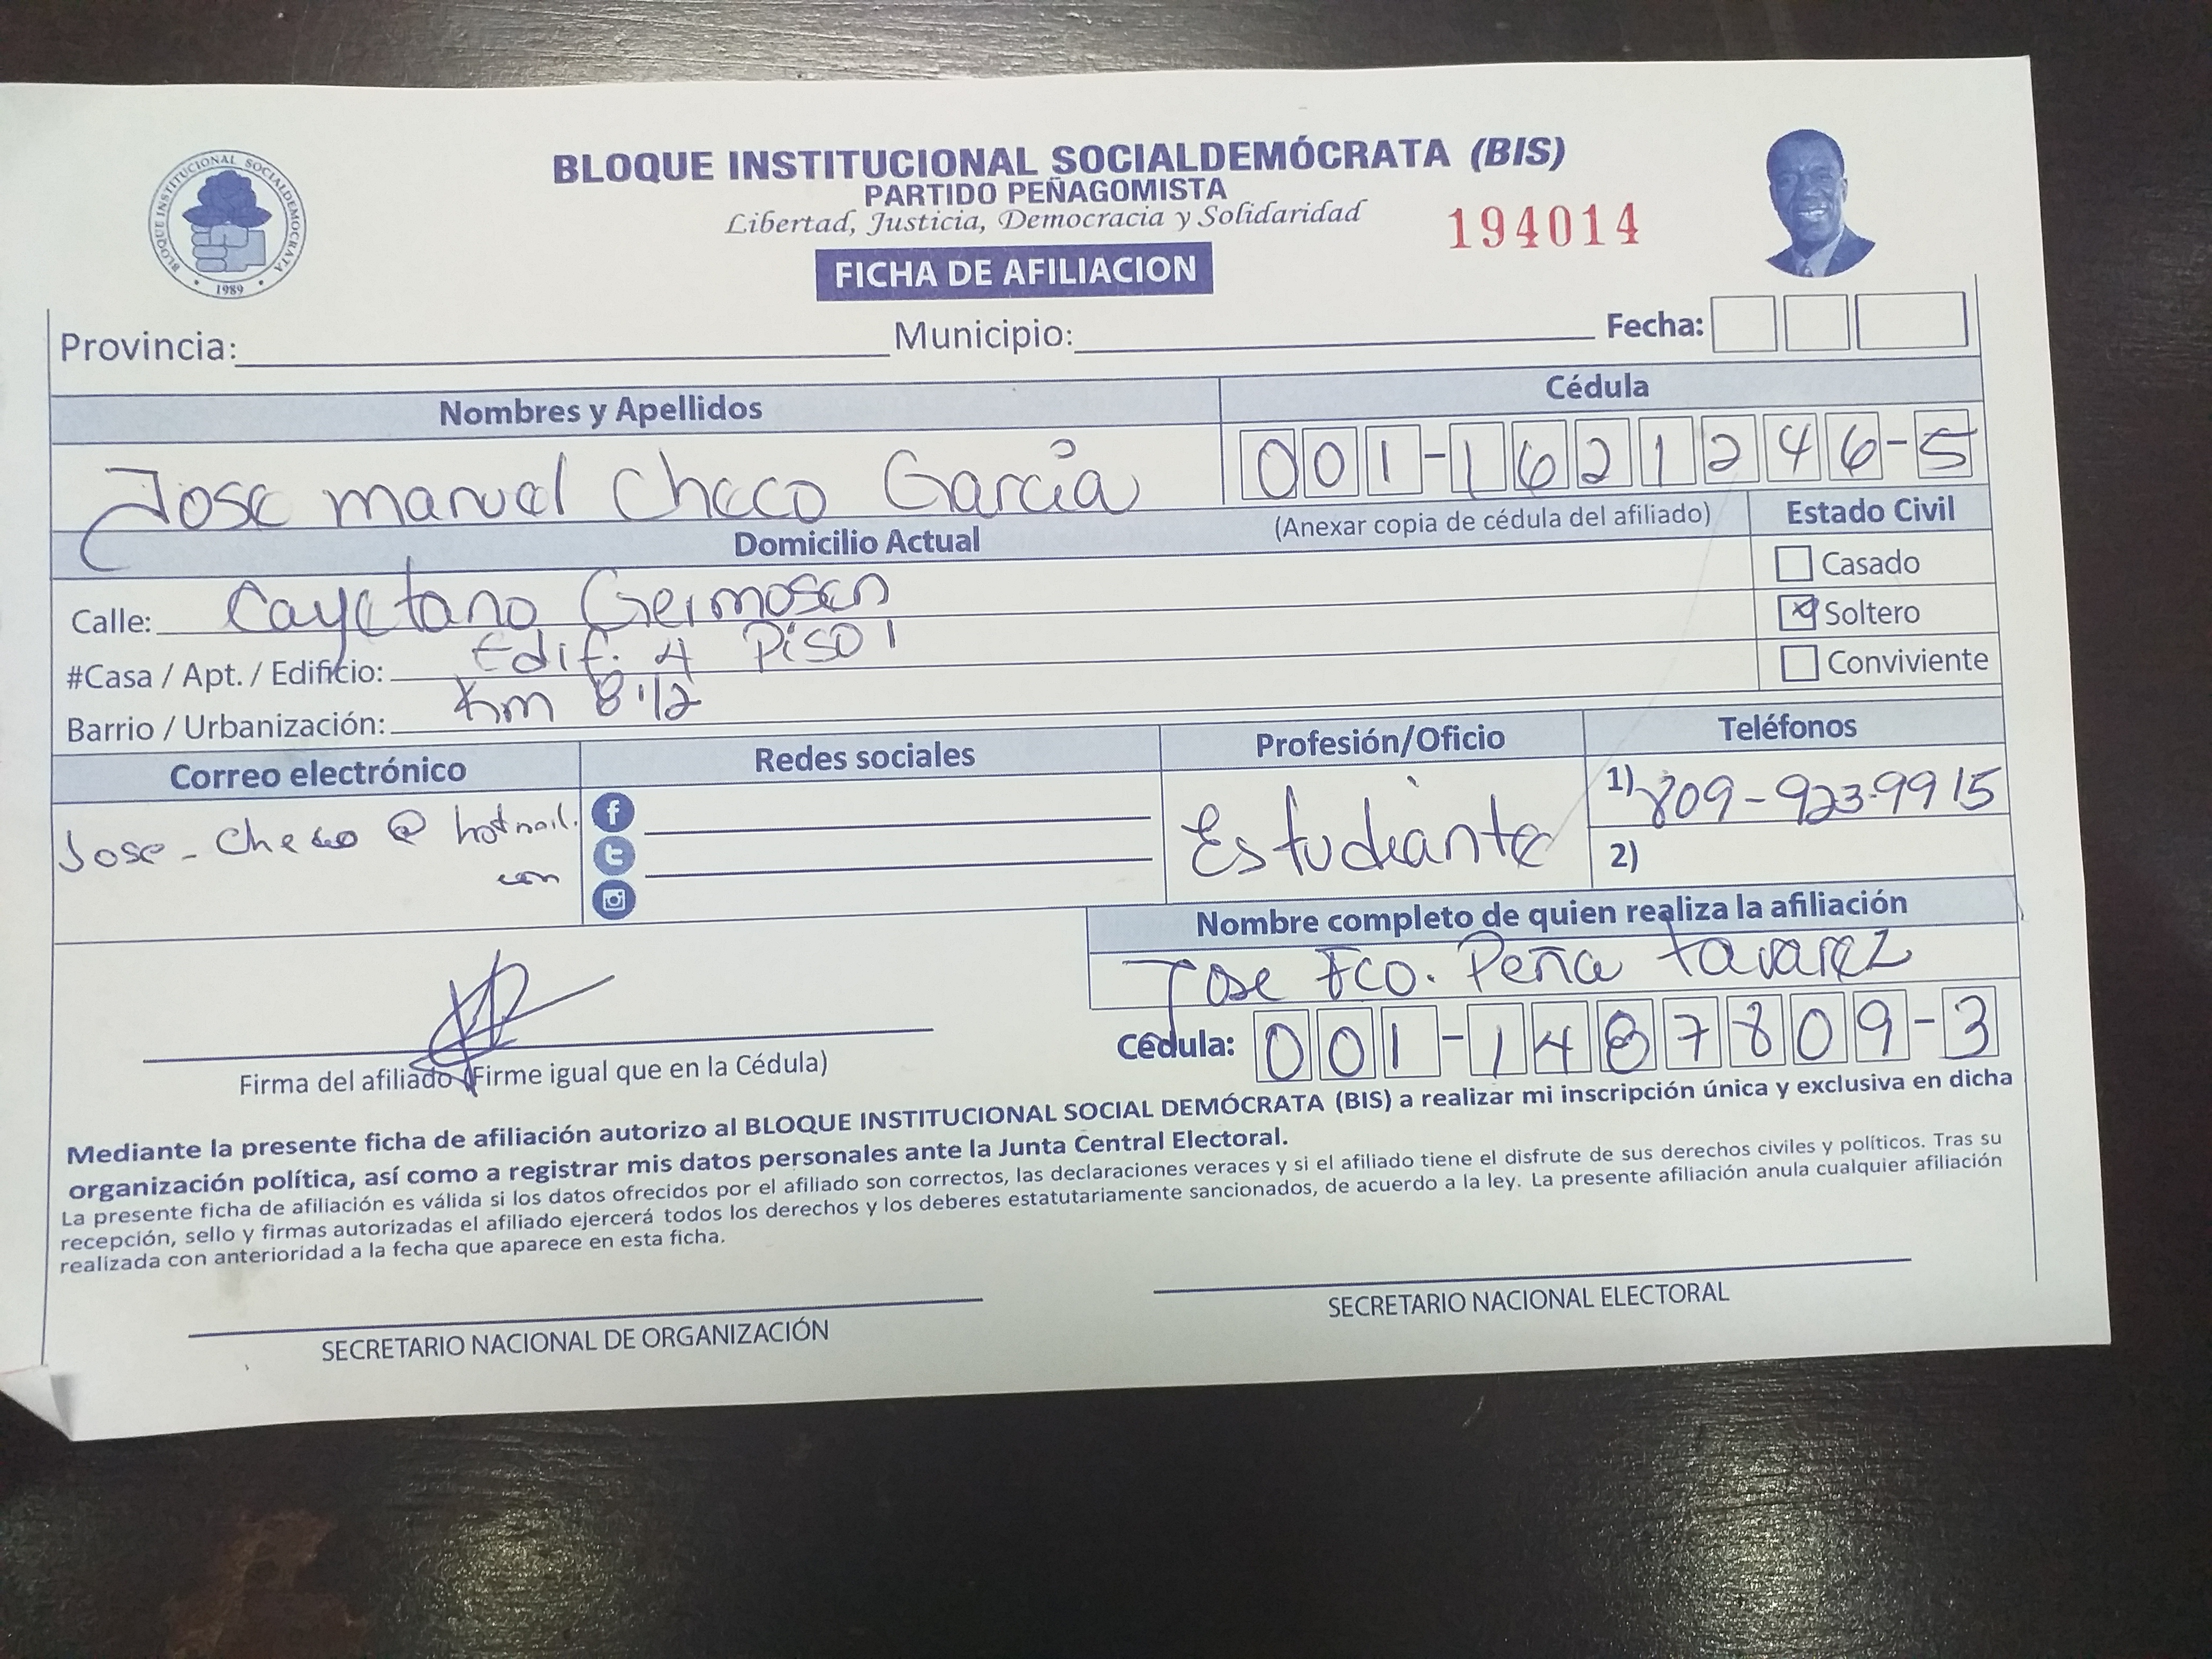 BLOQUE INSTITUCIONAL SOCIALDEMÓCRATA (BIS)
PARTIDO PEÑAGOMISTA
Libertad, Justicia, Democracia y Solidaridad
194014
FICHA DE AFILIACION
BLOQUE INSTITUCIONAL SOCIALDEMOCRATA
1989
Provincia: Municipio: Fecha:
Nombres y Apellidos Cédula
Jose manuel Checo García 001-1621246-5
Domicilio Actual (Anexar copia de cédula del afiliado) Estado Civil
Casado
Calle: Cayetano Germosen
Soltero
#Casa / Apt. / Edificio: Edif. 4 Piso 1
Conviviente
Barrio / Urbanización: Km 8 1/2
Correo electrónico Redes sociales Profesión/Oficio Teléfonos
Jose-Checo@hotmail.
com
f
t
Estudiante
1) 809-923-9915
2)
Nombre completo de quien realiza la afiliación
Jose Fco. Peña tavarez
Cédula: 001-1487809-3
Firma del afiliado (Firme igual que en la Cédula)
Mediante la presente ficha de afiliación autorizo al BLOQUE INSTITUCIONAL SOCIAL DEMÓCRATA (BIS) a realizar mi inscripción única y exclusiva en dicha
organización política, así como a registrar mis datos personales ante la Junta Central Electoral.
La presente ficha de afiliación es válida si los datos ofrecidos por el afiliado son correctos, las declaraciones veraces y si el afiliado tiene el disfrute de sus derechos civiles y políticos. Tras su
recepción, sello y firmas autorizadas el afiliado ejercerá todos los derechos y los deberes estatutariamente sancionados, de acuerdo a la ley. La presente afiliación anula cualquier afiliación
realizada con anterioridad a la fecha que aparece en esta ficha.
SECRETARIO NACIONAL DE ORGANIZACIÓN
SECRETARIO NACIONAL ELECTORAL